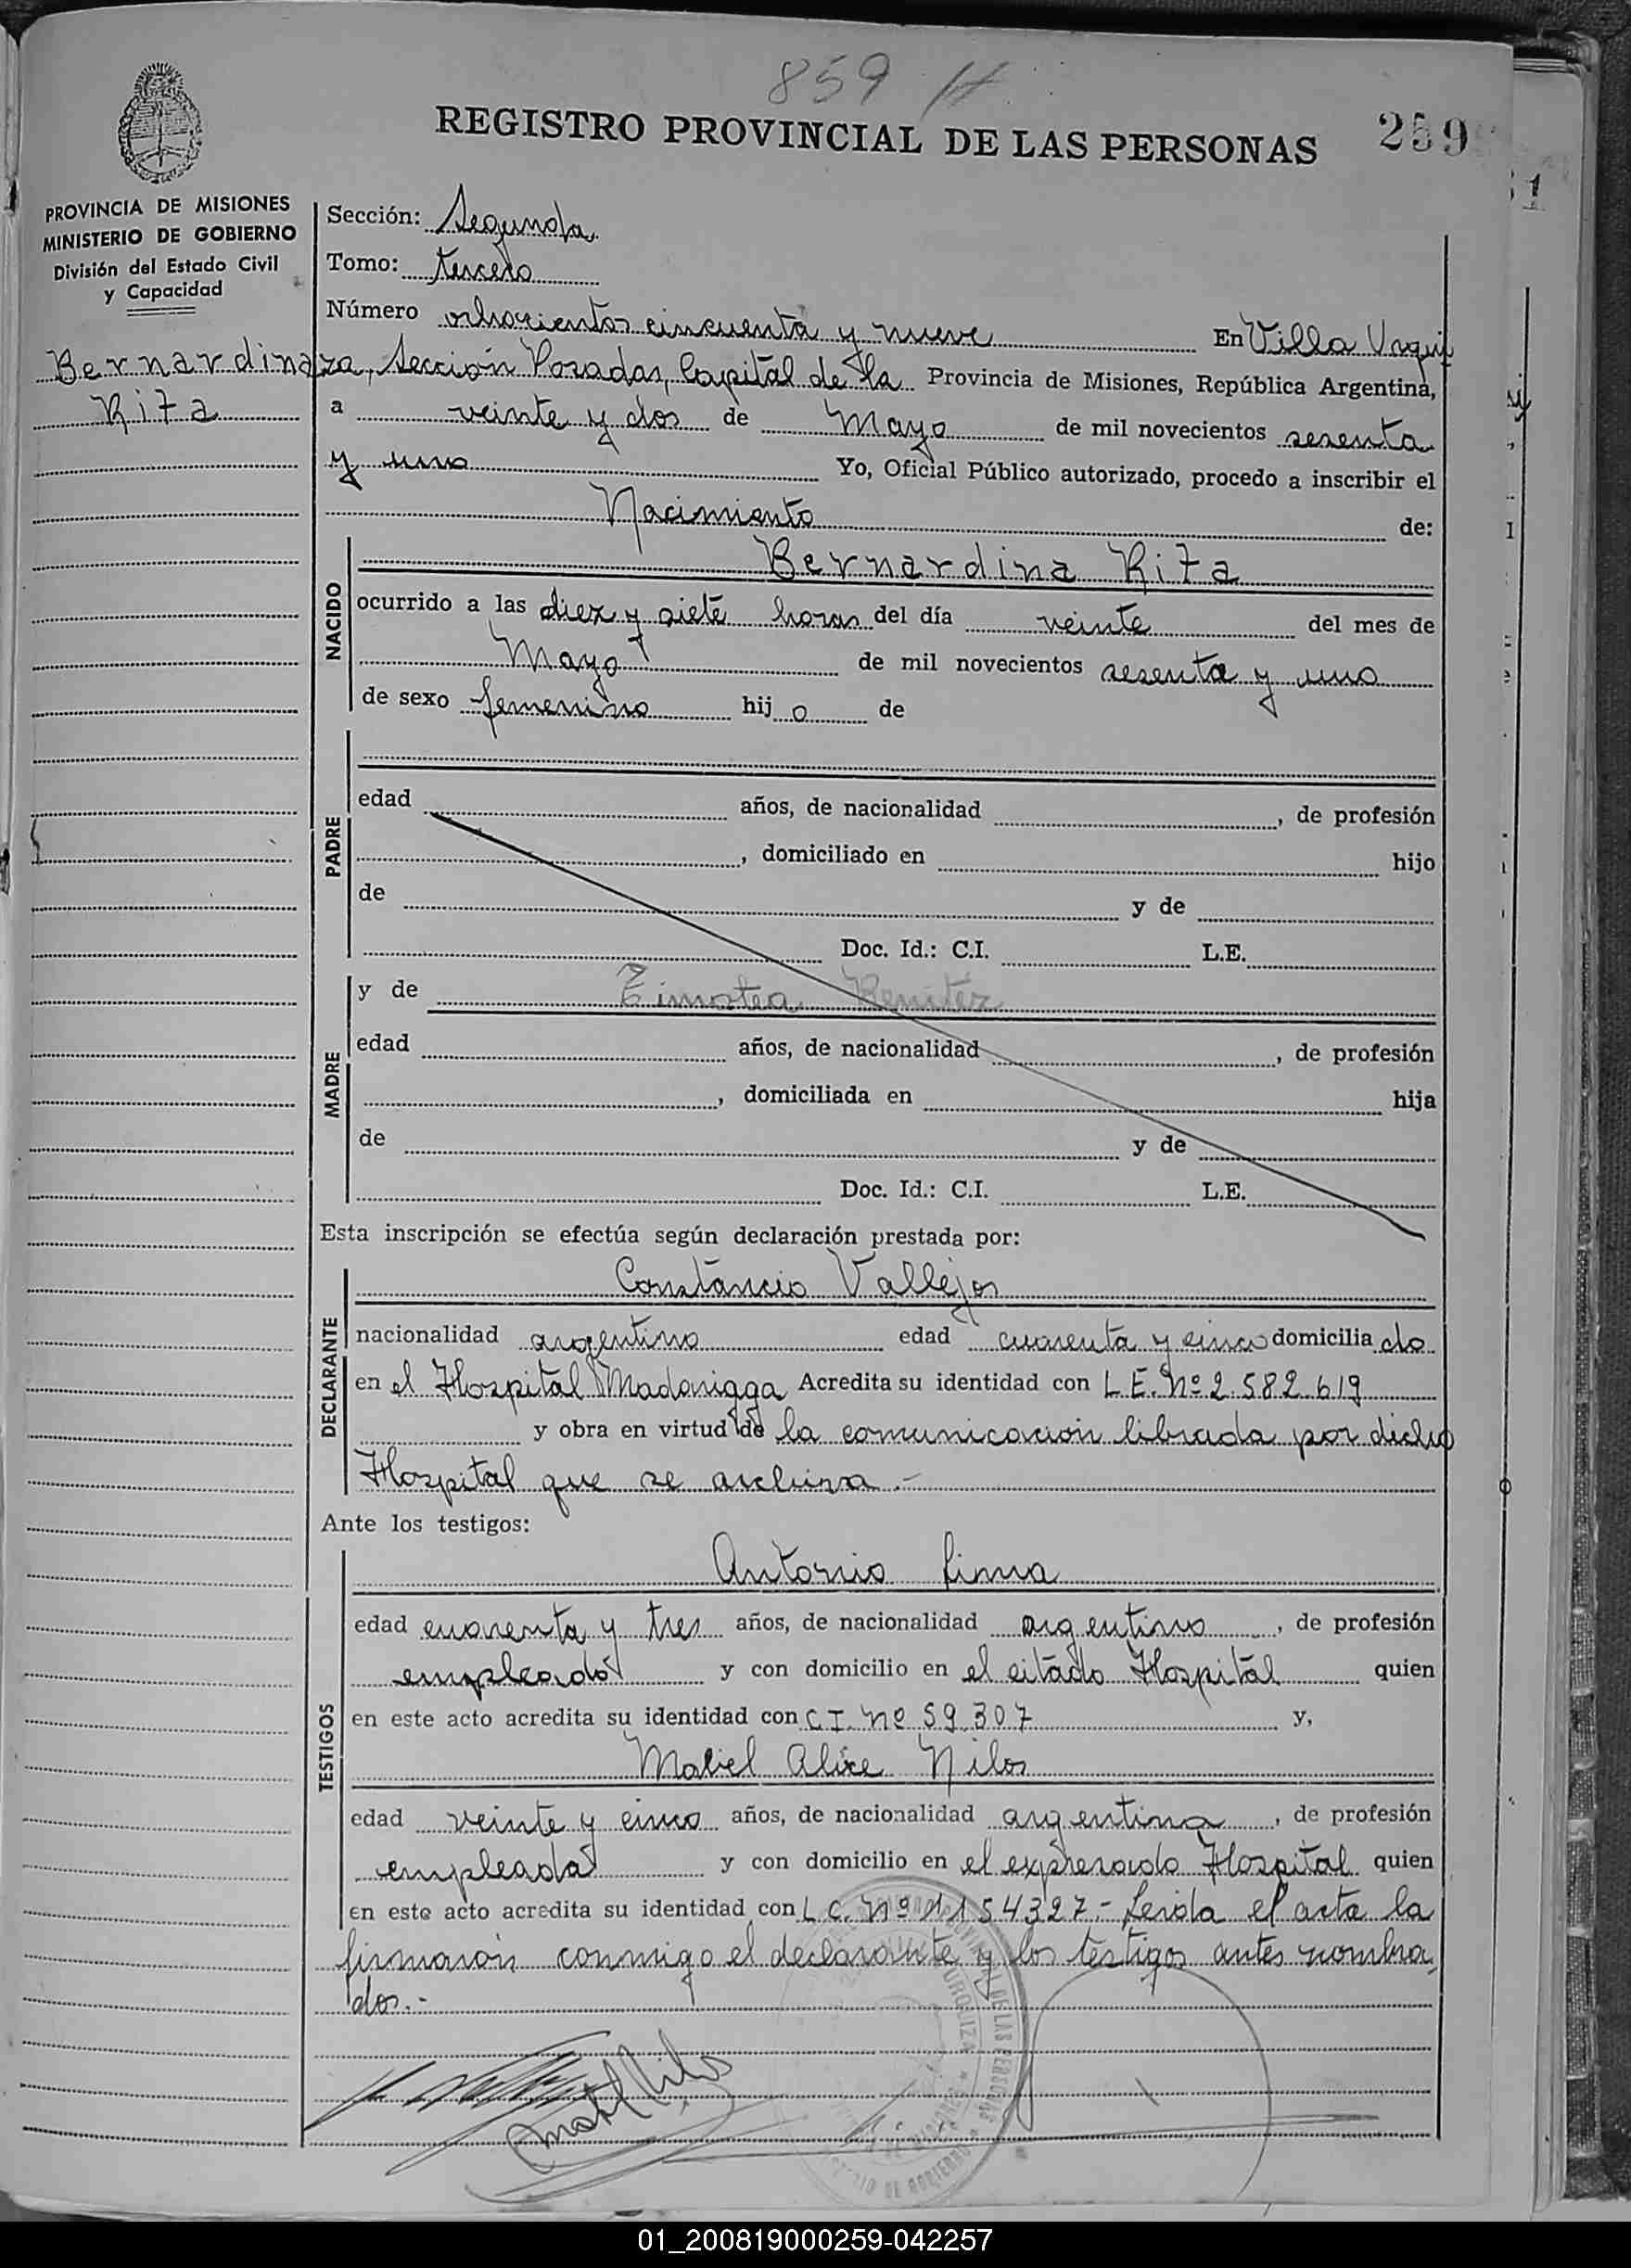 859 H
REGISTRO PROVINCIAL DE LAS PERSONAS 259
PROVINCIA DE MISIONES
MINISTERIO DE GOBIERNO
División del Estado Civil
y Capacidad
Bernardina
Rita
Sección: Segunda
Tomo: tercero
Número ochocientos cincuenta y nueve En Villa Urqui
za, Sección Posadas, Capital de la Provincia de Misiones, República Argentina,
a veinte y dos de Mayo de mil novecientos sesenta
y uno Yo, Oficial Público autorizado, procedo a inscribir el
Nacimiento de:
NACIDO
Bernardina Rita
ocurrido a las diez y siete horas del día veinte del mes de
Mayo de mil novecientos sesenta y uno
de sexo femenino hij o de
PADRE
edad años, de nacionalidad , de profesión
, domiciliado en hijo
de y de
Doc. Id.: C.I. L.E.
MADRE
y de Timotea Benitez
edad años, de nacionalidad , de profesión
, domiciliada en hija
de y de
Doc. Id.: C.I. L.E.
Esta inscripción se efectúa según declaración prestada por:
DECLARANTE
Constancio Vallejos
nacionalidad argentino edad cuarenta y cinco domicilia do
en el Hospital Madariaga Acredita su identidad con L.E. Nº 2.582.619
y obra en virtud de la comunicación librada por dicho
Hospital que se archiva.-
Ante los testigos:
TESTIGOS
Antonio Lima
edad cuarenta y tres años, de nacionalidad argentino , de profesión
empleado y con domicilio en el citado Hospital quien
en este acto acredita su identidad con C.I. Nº 59.307 y,
Mabel Alice Nilos
edad veinte y cinco años, de nacionalidad argentina , de profesión
empleada y con domicilio en el expresado Hospital quien
en este acto acredita su identidad con L.C. Nº 1.154327.- Leida el acta la
firmaron conmigo el declarante y los testigos antes nombra
dos.-
01_200819000259-042257